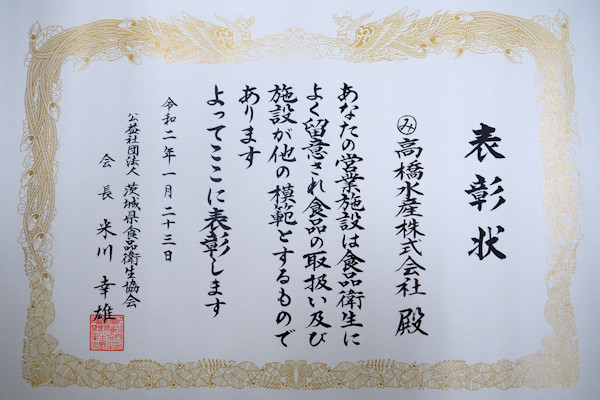 表彰状
㋯高橋水産株式会社 殿
あなたの営業施設は食品衛生に
よく留意され食品の取扱い及び
施設が他の模範とするもので
あります
よってここに表彰します
令和二年一月二十三日
公益社団法人 茨城県食品衛生協会
会長 米川幸雄